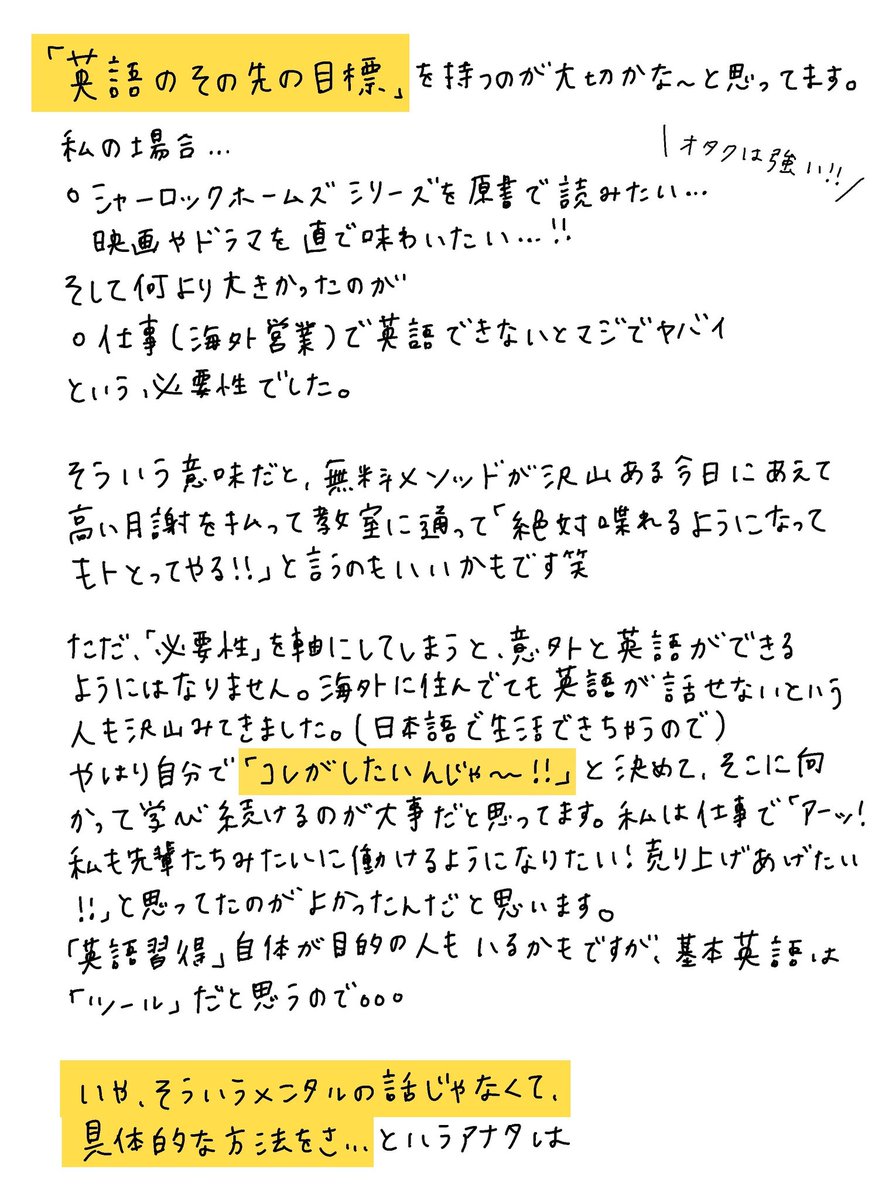 「英語のその先の目標」を持つのが大切かな〜と思ってます。
私の場合…
\オタクは強い!!/
○シャーロックホームズシリーズを原書で読みたい…
映画やドラマを直で味わいたい…!!
そして何より大きかったのが
○仕事(海外営業)で英語できないとマジでヤバイ
という、必要性でした。
そういう意味だと、無料メソッドが沢山ある今日にあえて
高い月謝を払って教室に通って「絶対喋れるようになって
モトとってやる!!」と言うのもいいかもです笑
ただ、「必要性」を軸にしてしまうと、意外と英語ができる
ようにはなりません。海外に住んでても英語が話せないという
人も沢山みてきました。(日本語で生活できちゃうので)
やはり自分で「コレがしたいんじゃ〜!!」と決めて、そこに向
かって学び続けるのが大事だと思ってます。私は仕事で「アーッ!
私も先輩たちみたいに働けるようになりたい!売り上げあげたい
!!」と思ってたのがよかったんだと思います。
「英語習得」自体が目的の人もいるかもですが、基本英語は
「ツール」だと思うので。。。
いや、そういうメンタルの話じゃなくて、
具体的な方法をさ…というアナタは